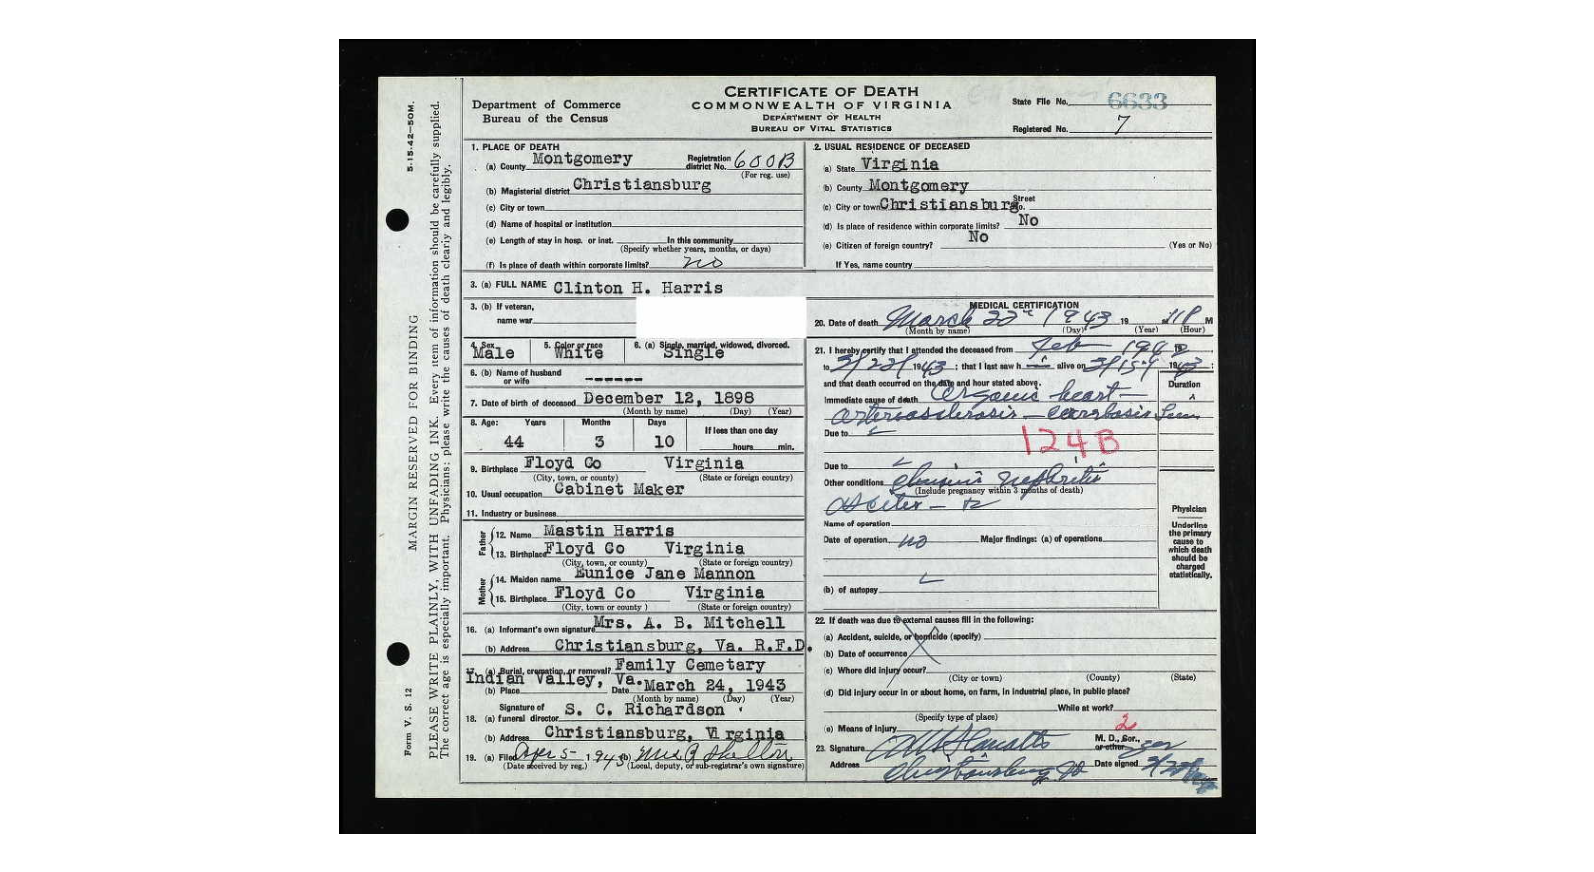 CERTIFICATE OF DEATH
COMMONWEALTH OF VIRGINIA
DEPARTMENT OF HEALTH
BUREAU OF VITAL STATISTICS
Department of Commerce
Bureau of the Census
State File No. 6633
Registered No. 7
5-15-42—50M.
MARGIN RESERVED FOR BINDING
PLEASE WRITE PLAINLY, WITH UNFADING INK. Every item of information should be carefully supplied.
The correct age is especially important. Physicians: please write the causes of death clearly and legibly.
Form V. S. 12
1. PLACE OF DEATH
(a) County Montgomery Registration district No. 600B
(For reg. use)
(b) Magisterial district Christiansburg
(c) City or town
(d) Name of hospital or institution
(e) Length of stay in hosp. or inst. In this community
(Specify whether years, months, or days)
(f) Is place of death within corporate limits? no
2. USUAL RESIDENCE OF DECEASED
(a) State Virginia
(b) County Montgomery
(c) City or town Christiansburg Street No.
(d) Is place of residence within corporate limits? No
(e) Citizen of foreign country? No (Yes or No)
If Yes, name country
3. (a) FULL NAME Clinton H. Harris
3. (b) If veteran,
name war
4. Sex Male 5. Color or race White 6. (a) Single, married, widowed, divorced. Single
6. (b) Name of husband or wife ------
7. Date of birth of deceased December 12, 1898
(Month by name) (Day) (Year)
8. Age: Years Months Days If less than one day
44 3 10 hours min.
9. Birthplace Floyd Co Virginia
(City, town, or county) (State or foreign country)
10. Usual occupation Cabinet Maker
11. Industry or business
Father
12. Name Mastin Harris
13. Birthplace Floyd Co Virginia
(City, town, or county) (State or foreign country)
Mother
14. Maiden name Eunice Jane Mannon
15. Birthplace Floyd Co Virginia
(City, town or county) (State or foreign country)
16. (a) Informant's own signature Mrs. A. B. Mitchell
(b) Address Christiansburg, Va. R.F.D.
17. (a) Burial, cremation, or removal? Family Cemetary
Indian Valley, Va.
(b) Place Date March 24, 1943
(Month by name) (Day) (Year)
Signature of
18. (a) funeral director S. C. Richardson
(b) Address Christiansburg, Virginia
19. (a) Filed Apr 5- 1943 (b) Mrs B Shelton
(Date received by reg.) (Local, deputy, or sub-registrar's own signature)
MEDICAL CERTIFICATION
20. Date of death March 22 1943 19 at 11P M
(Month by name) (Day) (Year) (Hour)
21. I hereby certify that I attended the deceased from Feb 194
to 3/22/ 1943; that I last saw h alive on 3/15 1943;
and that death occurred on the date and hour stated above.
Duration
Immediate cause of death Organic heart —
arteriosclerosis —
Due to
124B
Due to
Other conditions Chronic nephritis
(Include pregnancy within 3 months of death)
Name of operation
Date of operation no Major findings: (a) of operations
(b) of autopsy
Physician
Underline the primary cause to which death should be charged statistically.
22. If death was due to external causes fill in the following:
(a) Accident, suicide, or homicide (specify)
(b) Date of occurrence
(c) Where did injury occur?
(City or town) (County) (State)
(d) Did injury occur in or about home, on farm, in industrial place, in public place?
While at work?
(Specify type of place)
(e) Means of injury
2
23. Signature M. D., Cor., or other
Address Christiansburg Va Date signed